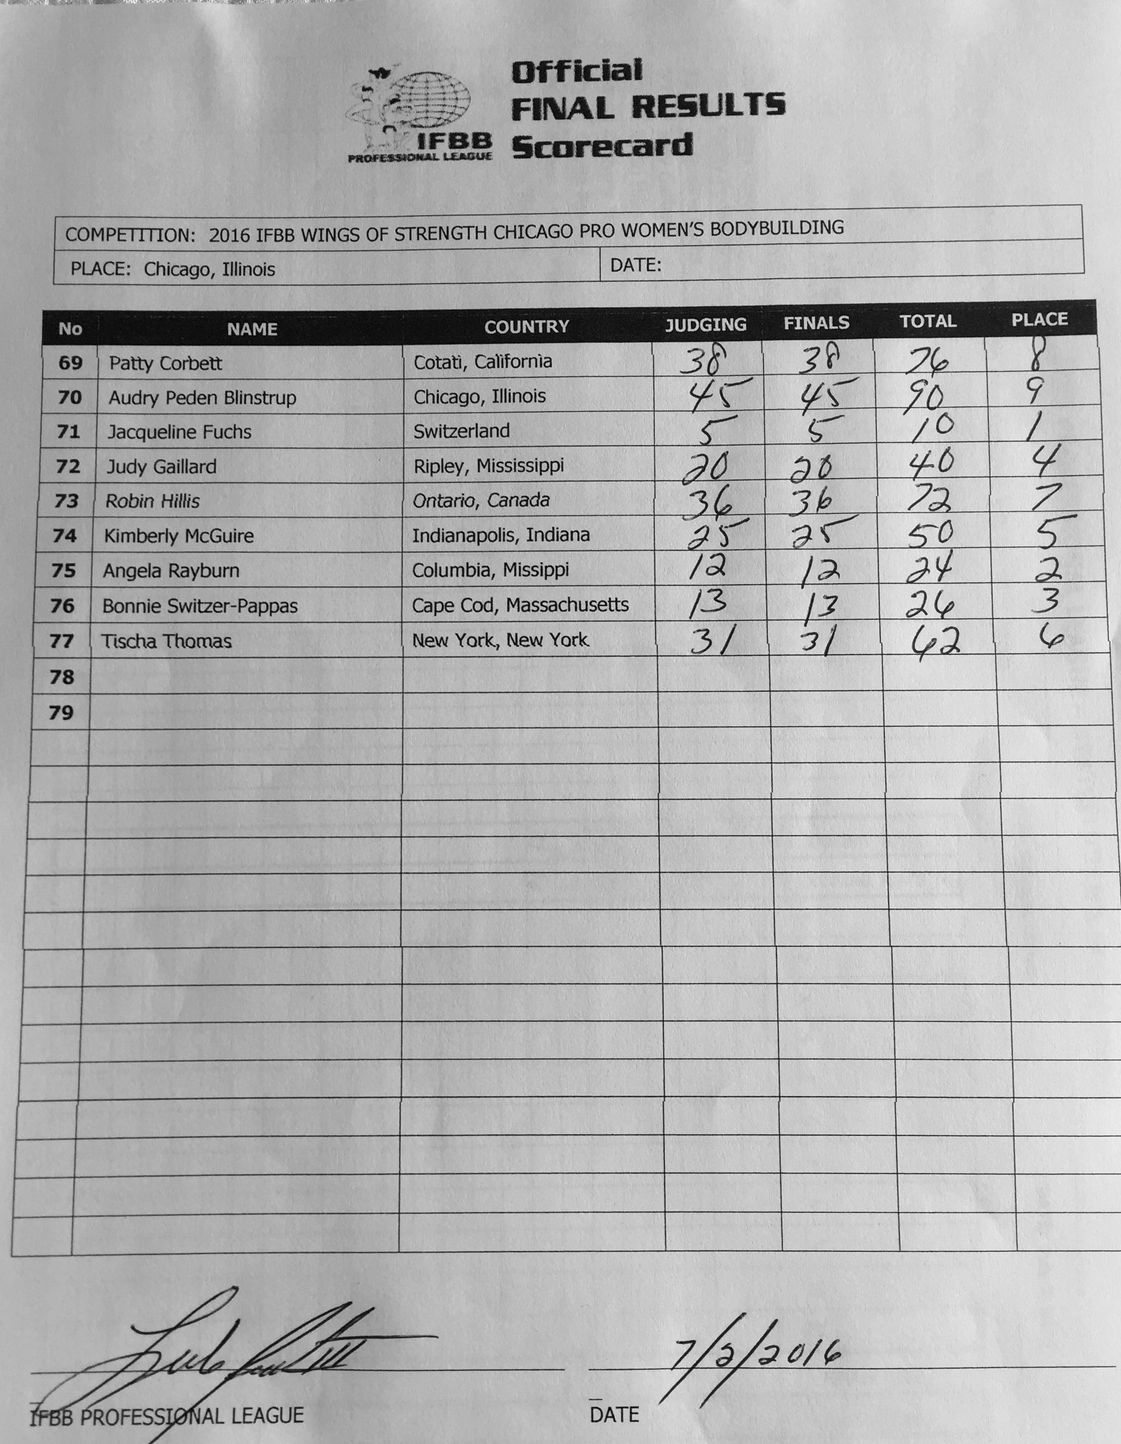 Official
FINAL RESULTS
Scorecard
IFBB
PROFESSIONAL LEAGUE
COMPETITION: 2016 IFBB WINGS OF STRENGTH CHICAGO PRO WOMEN'S BODYBUILDING
PLACE: Chicago, Illinois DATE:
No NAME COUNTRY JUDGING FINALS TOTAL PLACE
69 Patty Corbett Cotati, California 38 38 76 8
70 Audry Peden Blinstrup Chicago, Illinois 45 45 90 9
71 Jacqueline Fuchs Switzerland 5 5 10 1
72 Judy Gaillard Ripley, Mississippi 20 20 40 4
73 Robin Hillis Ontario, Canada 36 36 72 7
74 Kimberly McGuire Indianapolis, Indiana 25 25 50 5
75 Angela Rayburn Columbia, Missippi 12 12 24 2
76 Bonnie Switzer-Pappas Cape Cod, Massachusetts 13 13 26 3
77 Tischa Thomas New York, New York 31 31 62 6
78
79
7/2/2016
IFBB PROFESSIONAL LEAGUE DATE